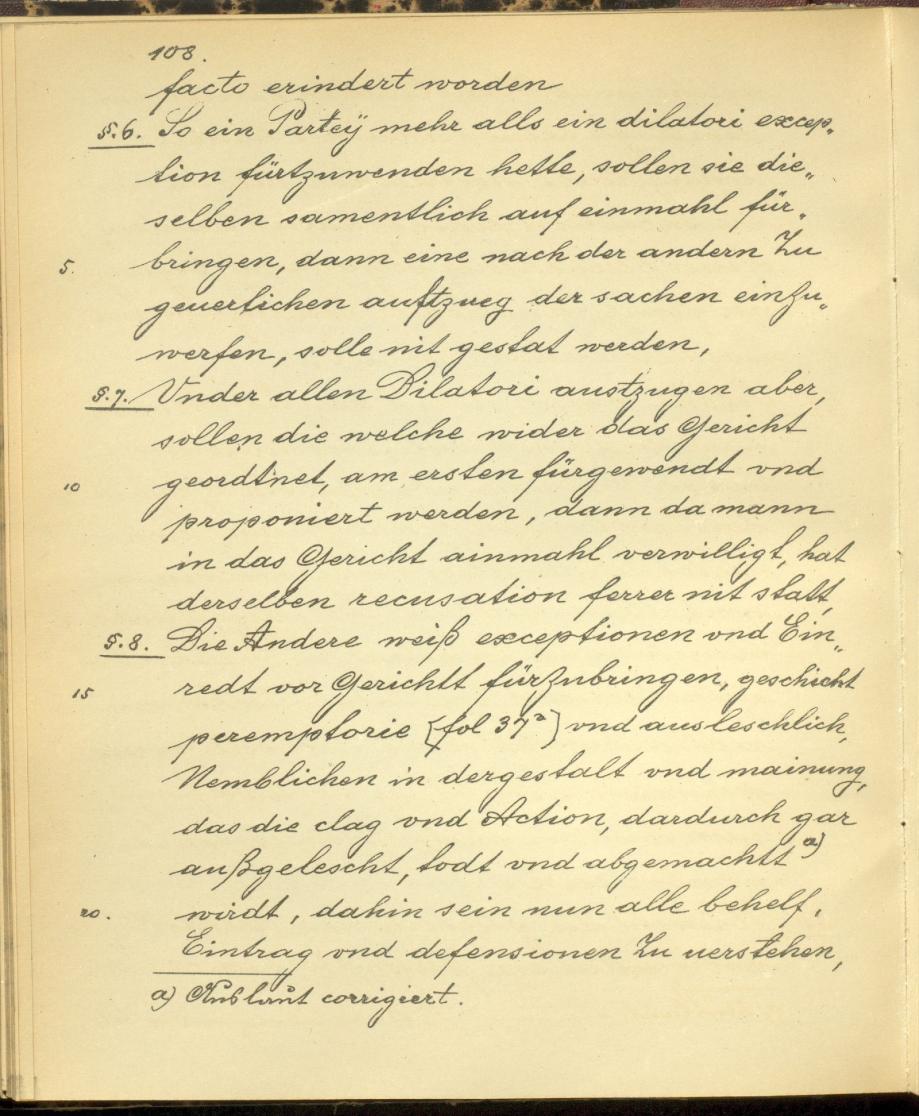 108.
facto erindert worden
§.6. So ein Parteÿ mehr alls ein dilatori excep„
tion fürtzuwenden hette, sollen sie die„
selben samentlich auf einmahl für„
5. bringen, dann eine nach der andern Zu
geuerlichen auftzueg der sachen einzu„
werfen, solle nit gestat werden,
§.7. Vnder allen Dilatori austzugen aber,
sollen die welche wider das Gericht
10 geordtnet, am ersten fürgewendt vnd
proponiert werden, dann da mann
in das Gericht ainmahl verwilligt, hat
derselben recusation ferrer nit statt,
§.8. Die Andere weiß exceptionen vnd Ein„
15 redt vor Gerichtt fürzubringen, geschicht
peremptorie [fol 37ª] vnd ausleschlich,
Nemblichen in dergestalt vnd mainung,
das die clag vnd Action, dardurch gar
außgelescht, todt vnd abgemachtt a)
20. wirdt, dahin sein nun alle behelf,
Eintrag vnd defensionen Zu uerstehen,
a) Auslaut corrigiert.